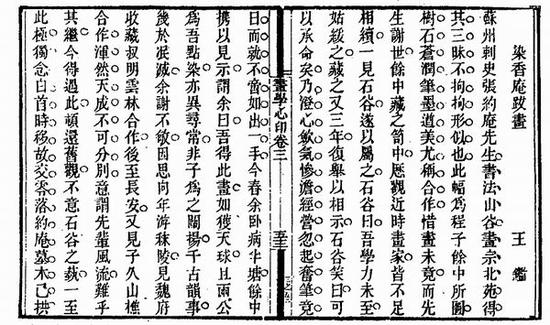 染香庵跋畫 王鑑
蘇州刺史張約庵先生書法山谷畫宗北苑得
其三昧不拘拘形似也此幅為程子餘中所圖
樹石蒼潤筆墨遒美尤稱合作惜畫未竟而先
生謝世餘中藏之笥中歷觀近時畫家皆不足
相續一見石谷遂以屬之石谷曰吾學力未至
姑緩之藏之又三年復舉以相示石谷笑曰可
以承命矣乃澄心歛氣慘澹經營忽起奮筆竟
畫學心印卷三
日而就不啻如出一手今春余臥病半塘餘中
攜以見示謂余曰吾得此畫如獲天球且兩公
為吾點染亦異尋常非子為之闡揚千古韻事
幾於泯滅余謝不敏因思向年游秣陵見魏府
收藏叔明雲林合作後至長安又見子久山樵
合作渾然天成不可分別意謂先輩風流難乎
其繼今得過此頓還舊觀不意石谷之藝一至
此極獨念白首時移故交零落約庵墓木已拱